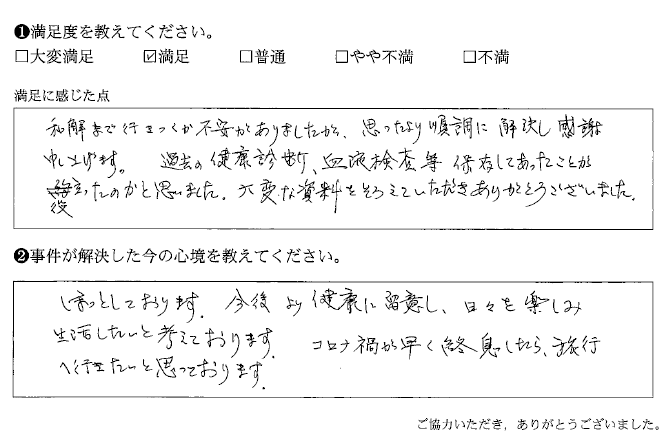 ❶満足度を教えてください。
□大変満足 ☑満足 □普通 □やや不満 □不満
満足に感じた点
和解まで行きつくか不安がありましたが、思ったより順調に解決し感謝
申し上げます。 過去の健康診断、血液検査等保存してあったことが
役立ったのかと思いました。大変な資料をそろえていただきありがとうございました。
❷事件が解決した今の心境を教えてください。
ほっとしております。今後より健康に留意し、日々を楽しみ
生活したいと考えております。 コロナ禍が早く終息したら、旅行
へ行きたいと思っております。
ご協力いただき，ありがとうございました。